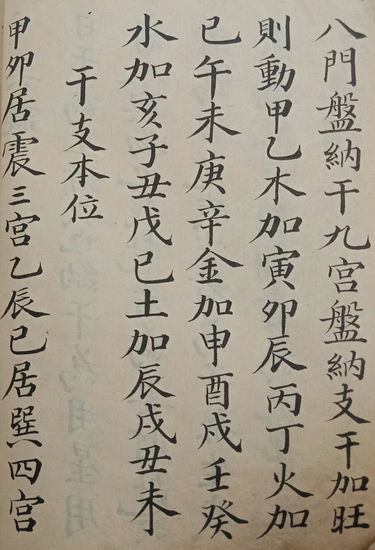 八門盤納干九宮盤納支干加旺
則動甲乙木加寅卯辰丙丁火加
巳午未庚辛金加申酉戌壬癸
水加亥子丑戊己土加辰戌丑未
干支本位
甲卯居震三宮乙辰巳居巽四宮